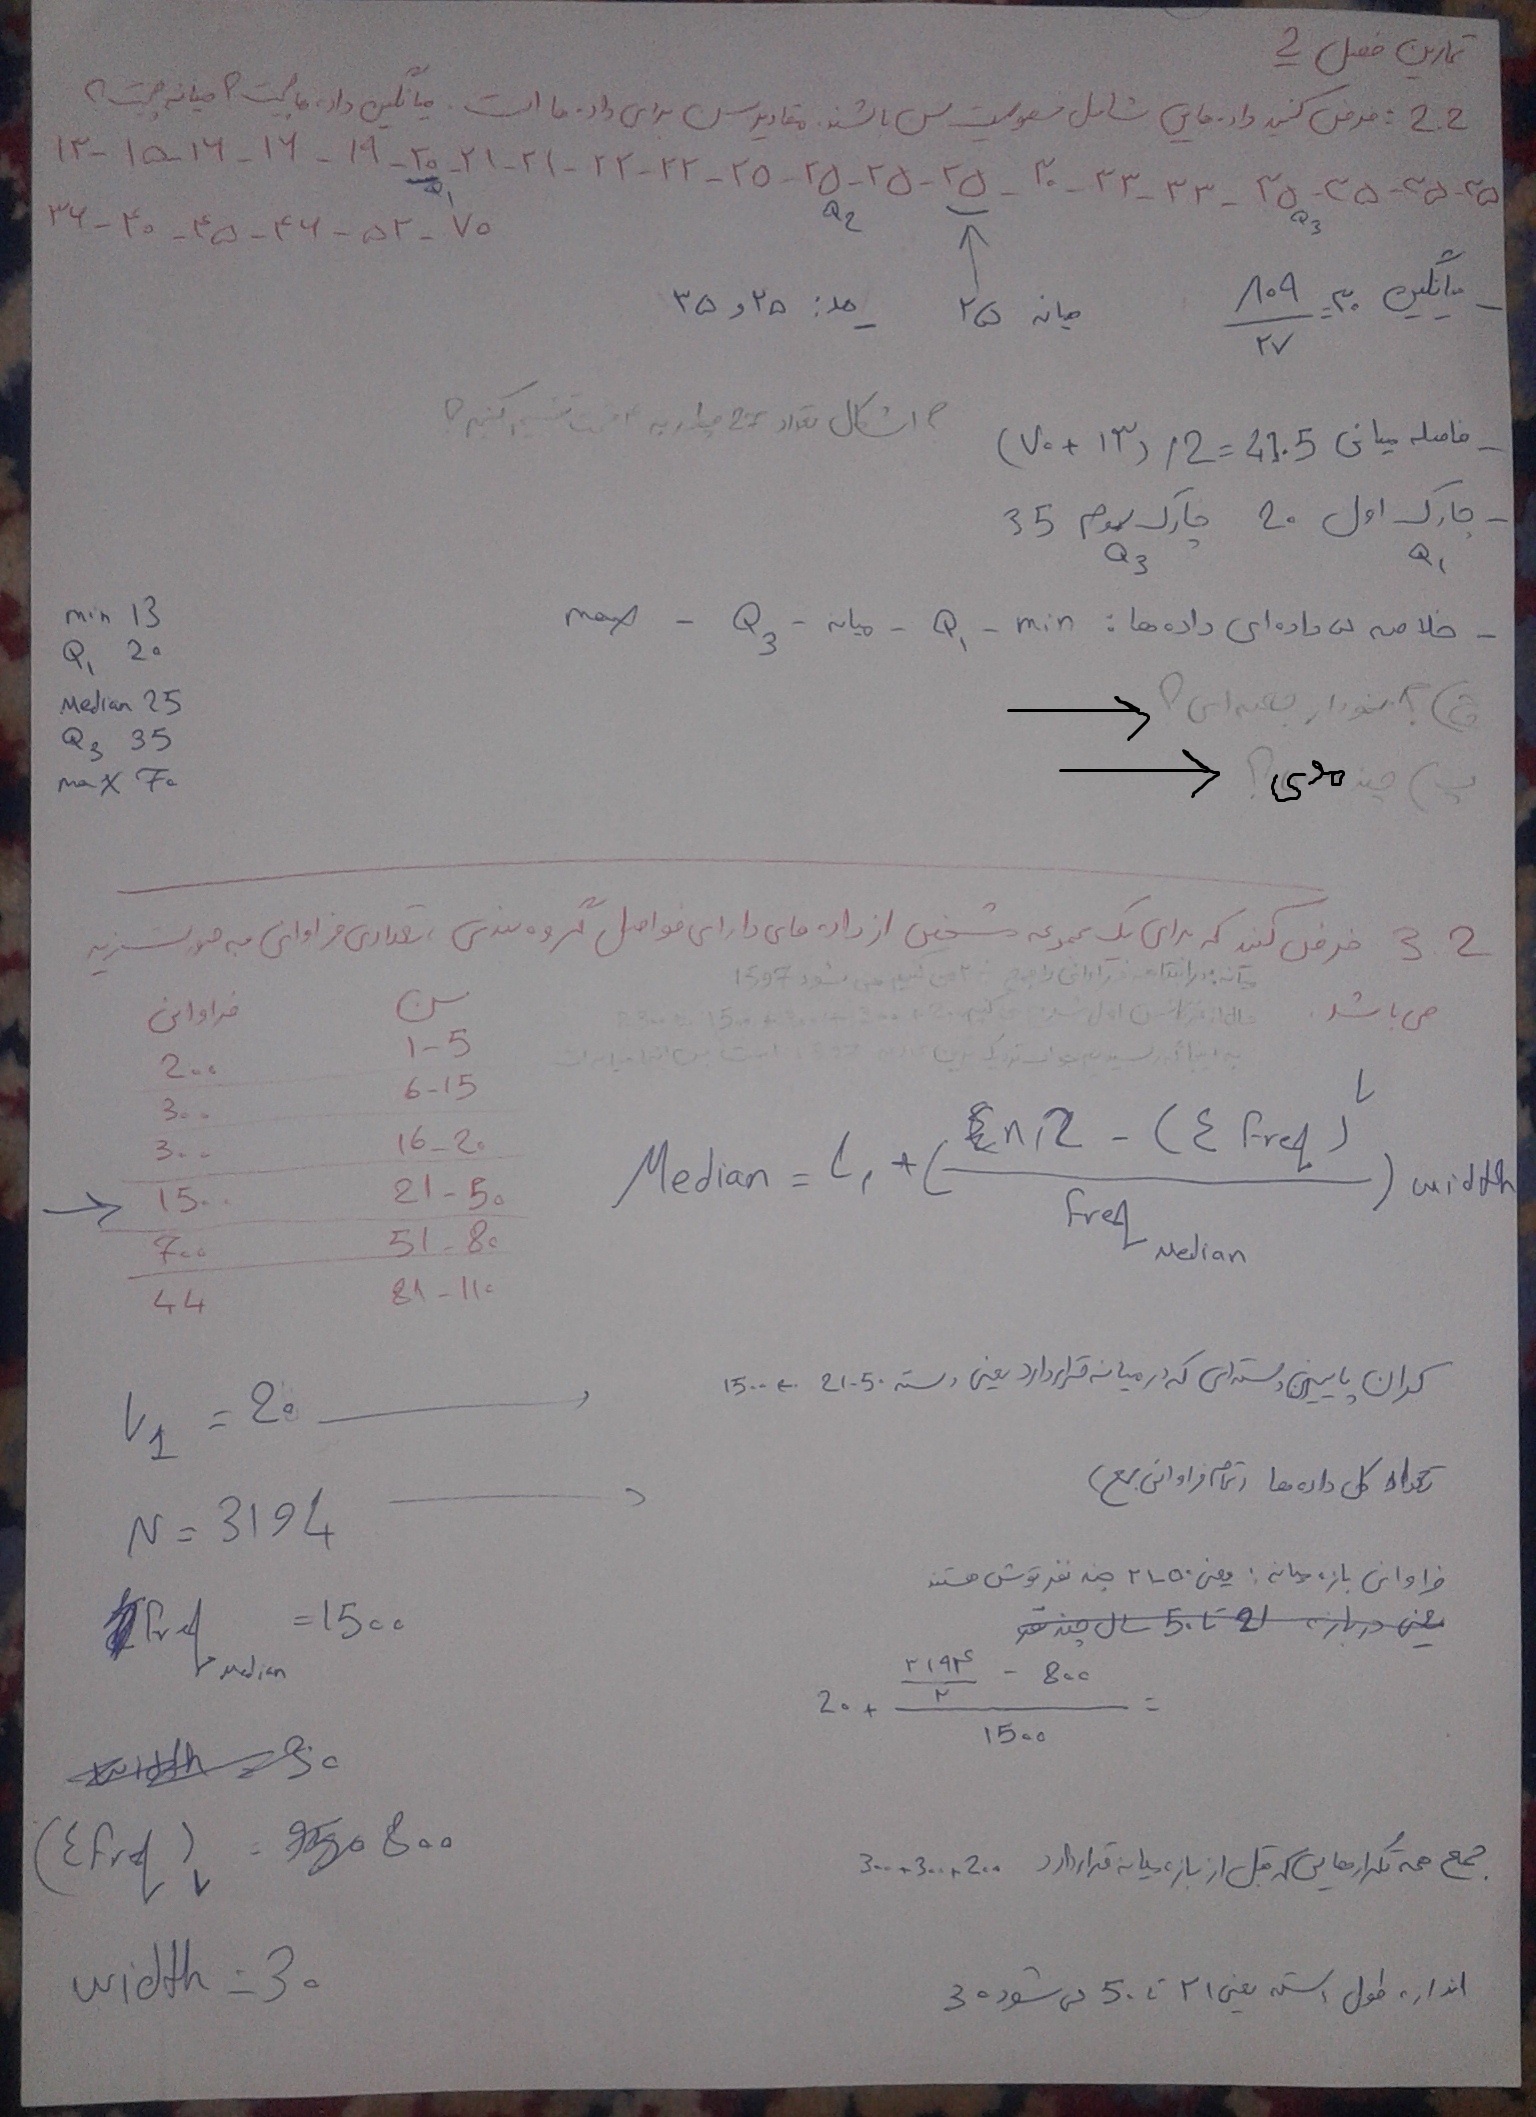 تمارین فصل 2
2.2 : فرض کنید داده‌هایی شامل خصوصیت سن باشند. مقادیر سن برای داده‌ها است. میانگین داده‌ها چیست؟ میانه چیست؟
۱۳-۱۵-۱۶-۱۶-۱۹-۲۰-۲۱-۲۱-۲۲-۲۲-۲۵-۲۵-۲۵-۲۵-۳۰-۳۳-۳۳-۳۵-۳۵-۳۵-۳۵
Q1 Q2 Q3
۳۶-۴۰-۴۵-۴۶-۵۲-۷۰
- میانگین ۳۰ = ۸۰۹ / ۲۷
میانه ۲۵
- مد: ۲۵ و ۳۵
؟ اشکال تعداد 27 چطور به ۴ قسمت تقسیم کنیم؟
- فاصله میانی (۷۰+۱۳)/2=41.5
- چارک اول 20 چارک سوم 35
Q1 Q3
- خلاصه داده‌ای داده‌ها: min - Q1 - میانه - Q3 - max
min 13
Q1 20
Median 25
Q3 35
max 70
چ) ؟ نمودار جعبه‌ای؟
چند
3.2 فرض کنید که برای یک مجموعه مشخص از داده‌های دارای فواصل گروه بندی، تعدادی فراوانی به صورت زیر
می‌باشد.
سن فراوانی
1-5 200
6-15 300
16-20 300
21-50 1500
51-80 700
81-110 44
Median = L1 + (n/2 - (Σ freq) L / freq Median) width
L1 = 20
کران پایینی دسته‌ای که در میانه قرار دارد یعنی دسته 21-50 ← 1500
N = 3194
تعداد کل داده‌ها (تمام فراوانی جمع)
freq Median = 1500
فراوانی بازه میانه: یعنی ۲۱-۵۰ چند نفر توش هستند
یعنی در بازه 21 تا 50 سال چند نفر
20 + ۳۱۹۴/۲ - 800 / 1500 =
width = 30
(Σ freq) L = 800
جمع همه تکرارهایی که قبل از بازه میانه قرار دارد 300+300+200
width = 30
اندازه طول دسته یعنی ۲۱ تا 50 می‌شود 30